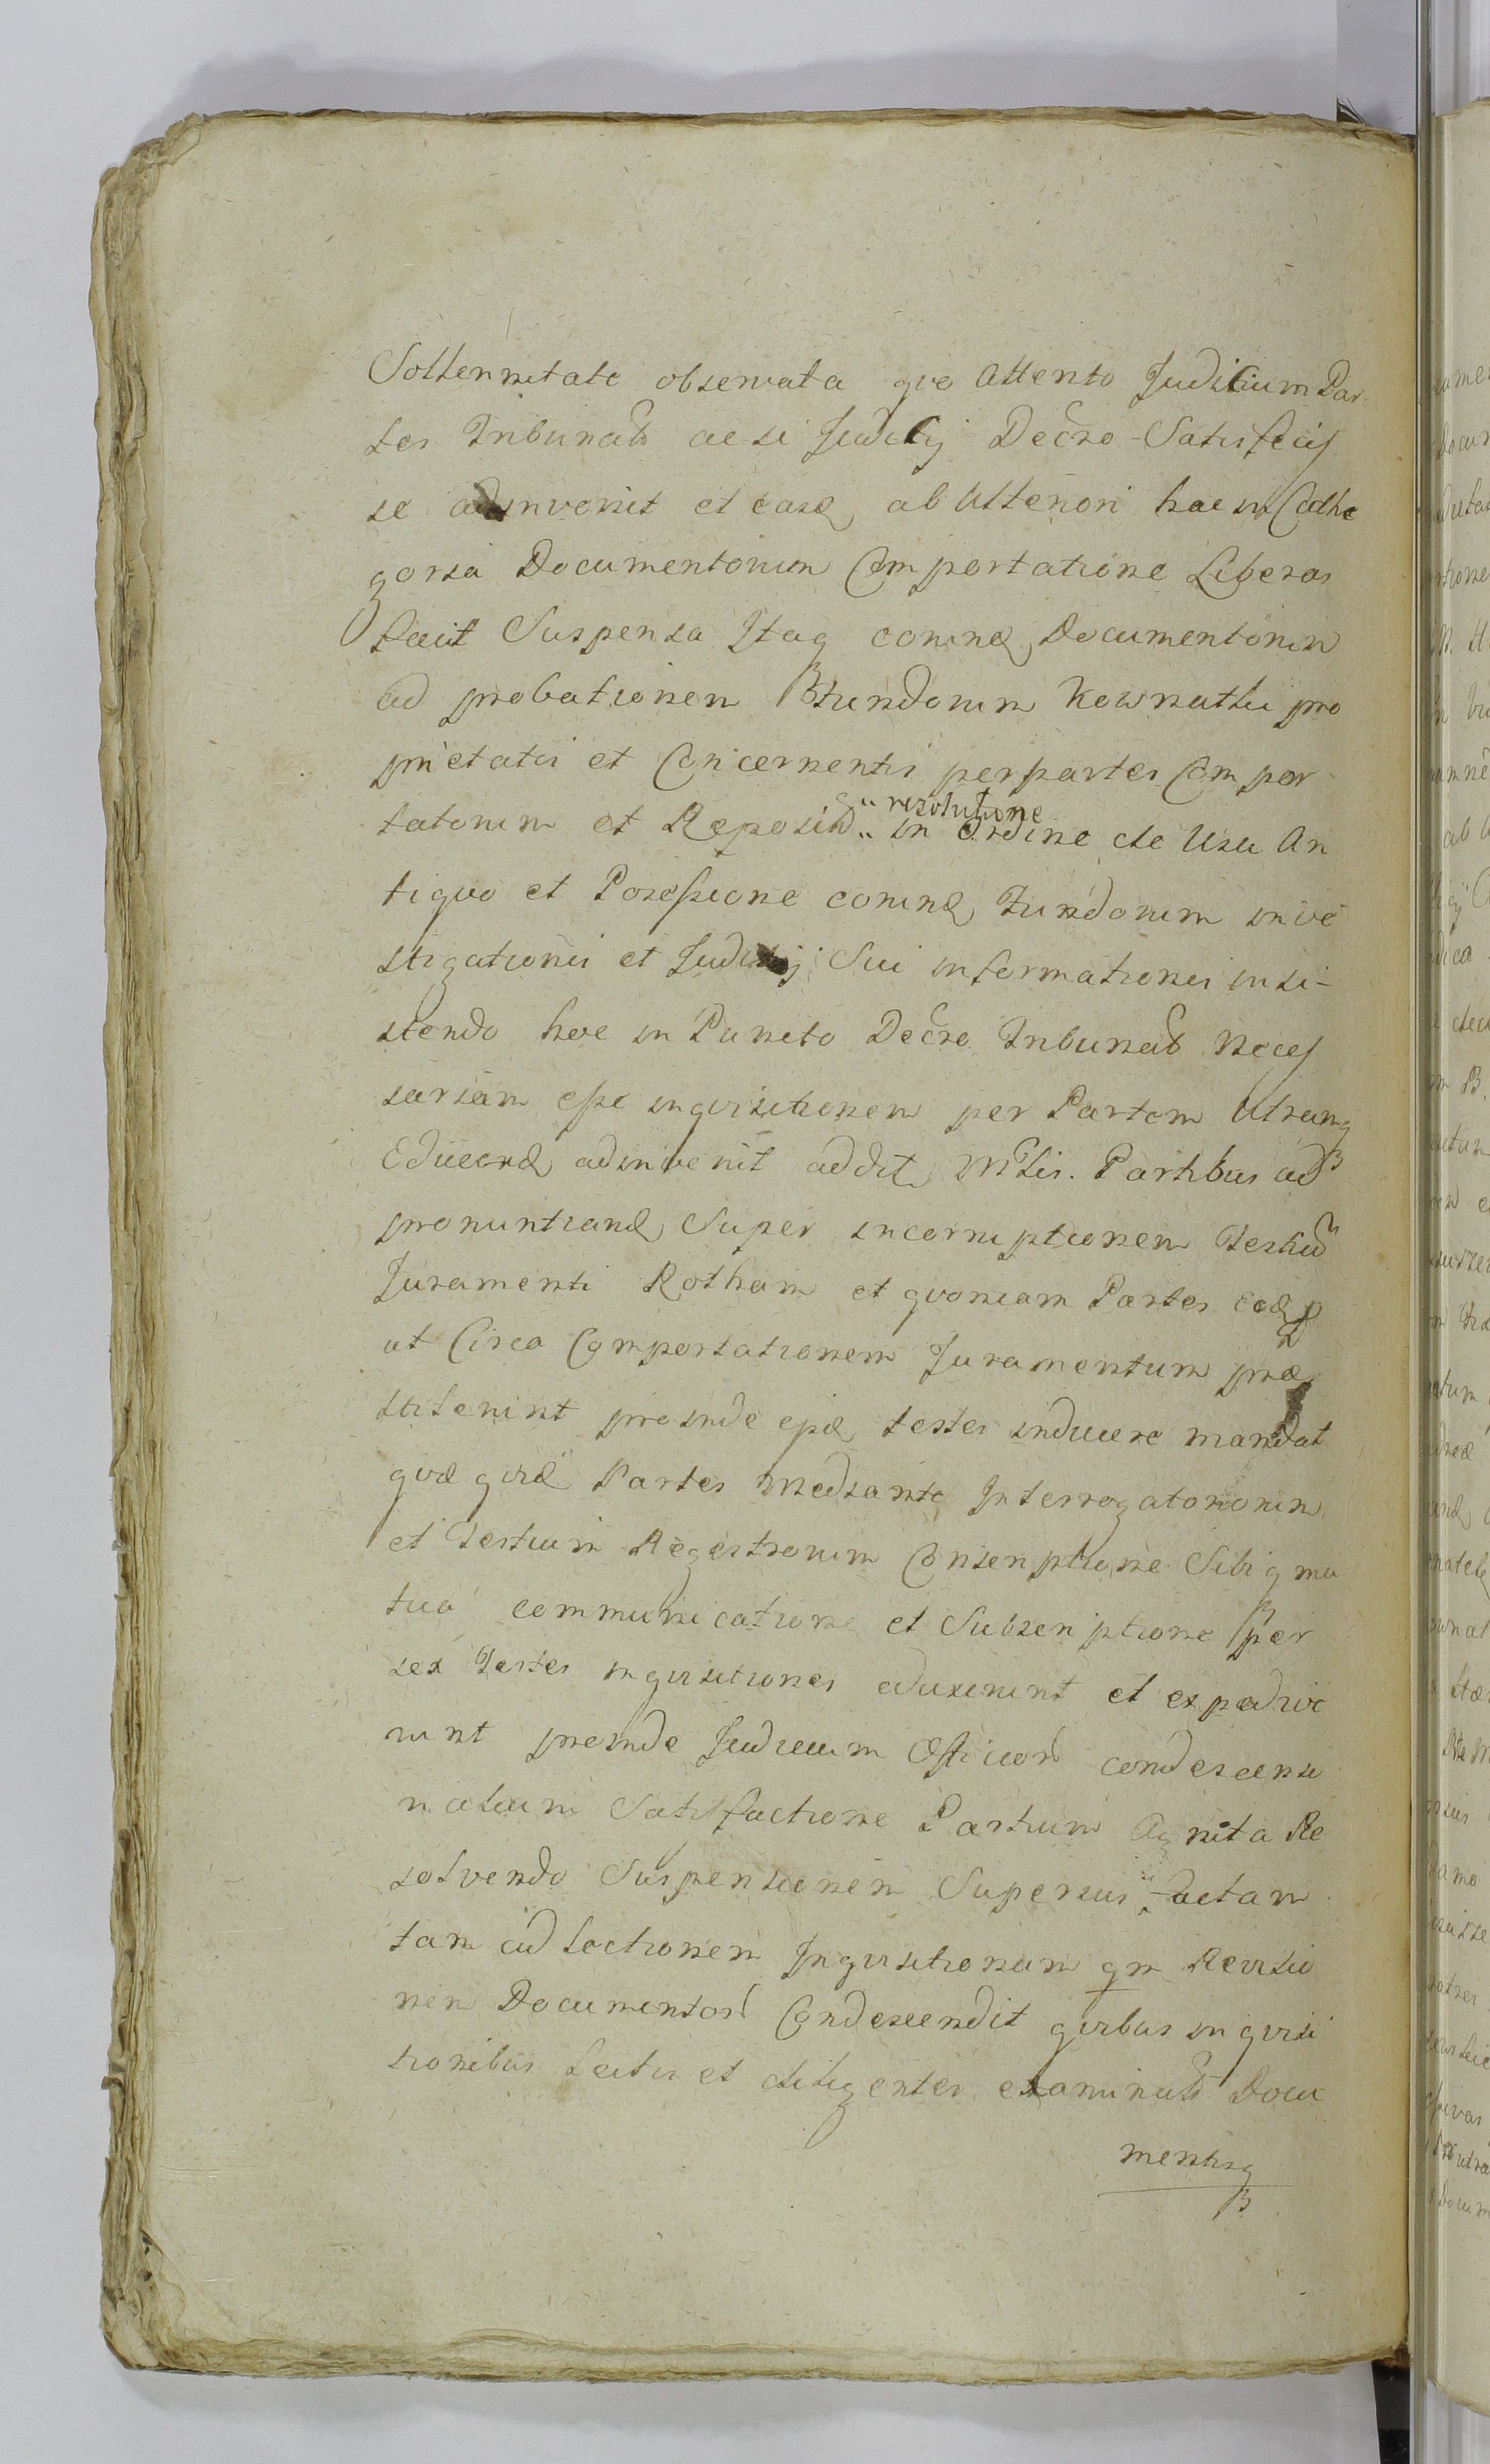 Sollennitate observata quo Attento Judicium Par
tes Tribunalis ac si Judicij Decro Satisfecis
se adinvenit et easd ab Ulteriori hac in Cathe
goria Documentorum Comportatione Liberas
facit Suspensa Itaq eorund Documentorum
ad probationem Fundorum Kownatki pro
prietatis et Concernentis per partes Compor
tatorum et Reposit resolutione in Ordine de Usu An
tiquo et Possessione eorund Fundorum inve
stigationis et Judicij Sui informationis insi-
stendo hoc in Puncto Decro Tribunal Neces
sariam esse inquisitionem per Partem Utramq
Educend adinvenit addit Mltis. Partibus ad
pronuntiand Super incorruptionem Testium
Juramenti Rotham et quoniam Partes eaed
ut Circa Comportationem Juramentum præ
stiterint proinde ipsæ testes inducere mandat
quæ quid Partes Mediante Interrogatoriorum
et Testium Regestrorum Conscriptione Sibiq mu
tua communicatione et Subscriptione per
sex Testes inquisitiones eduxerunt et expedive
runt proinde Judicium Officior condescensi
natum Satisfactione Partium Agnita Re
solvendo Suspensionem Superius factam
tam ad Lectionem Inquisitionum qm Revisio
nem Documentor Condescendit quibus inquisi
tionibus Lectis et diligenter examinatis Docu
mentisq